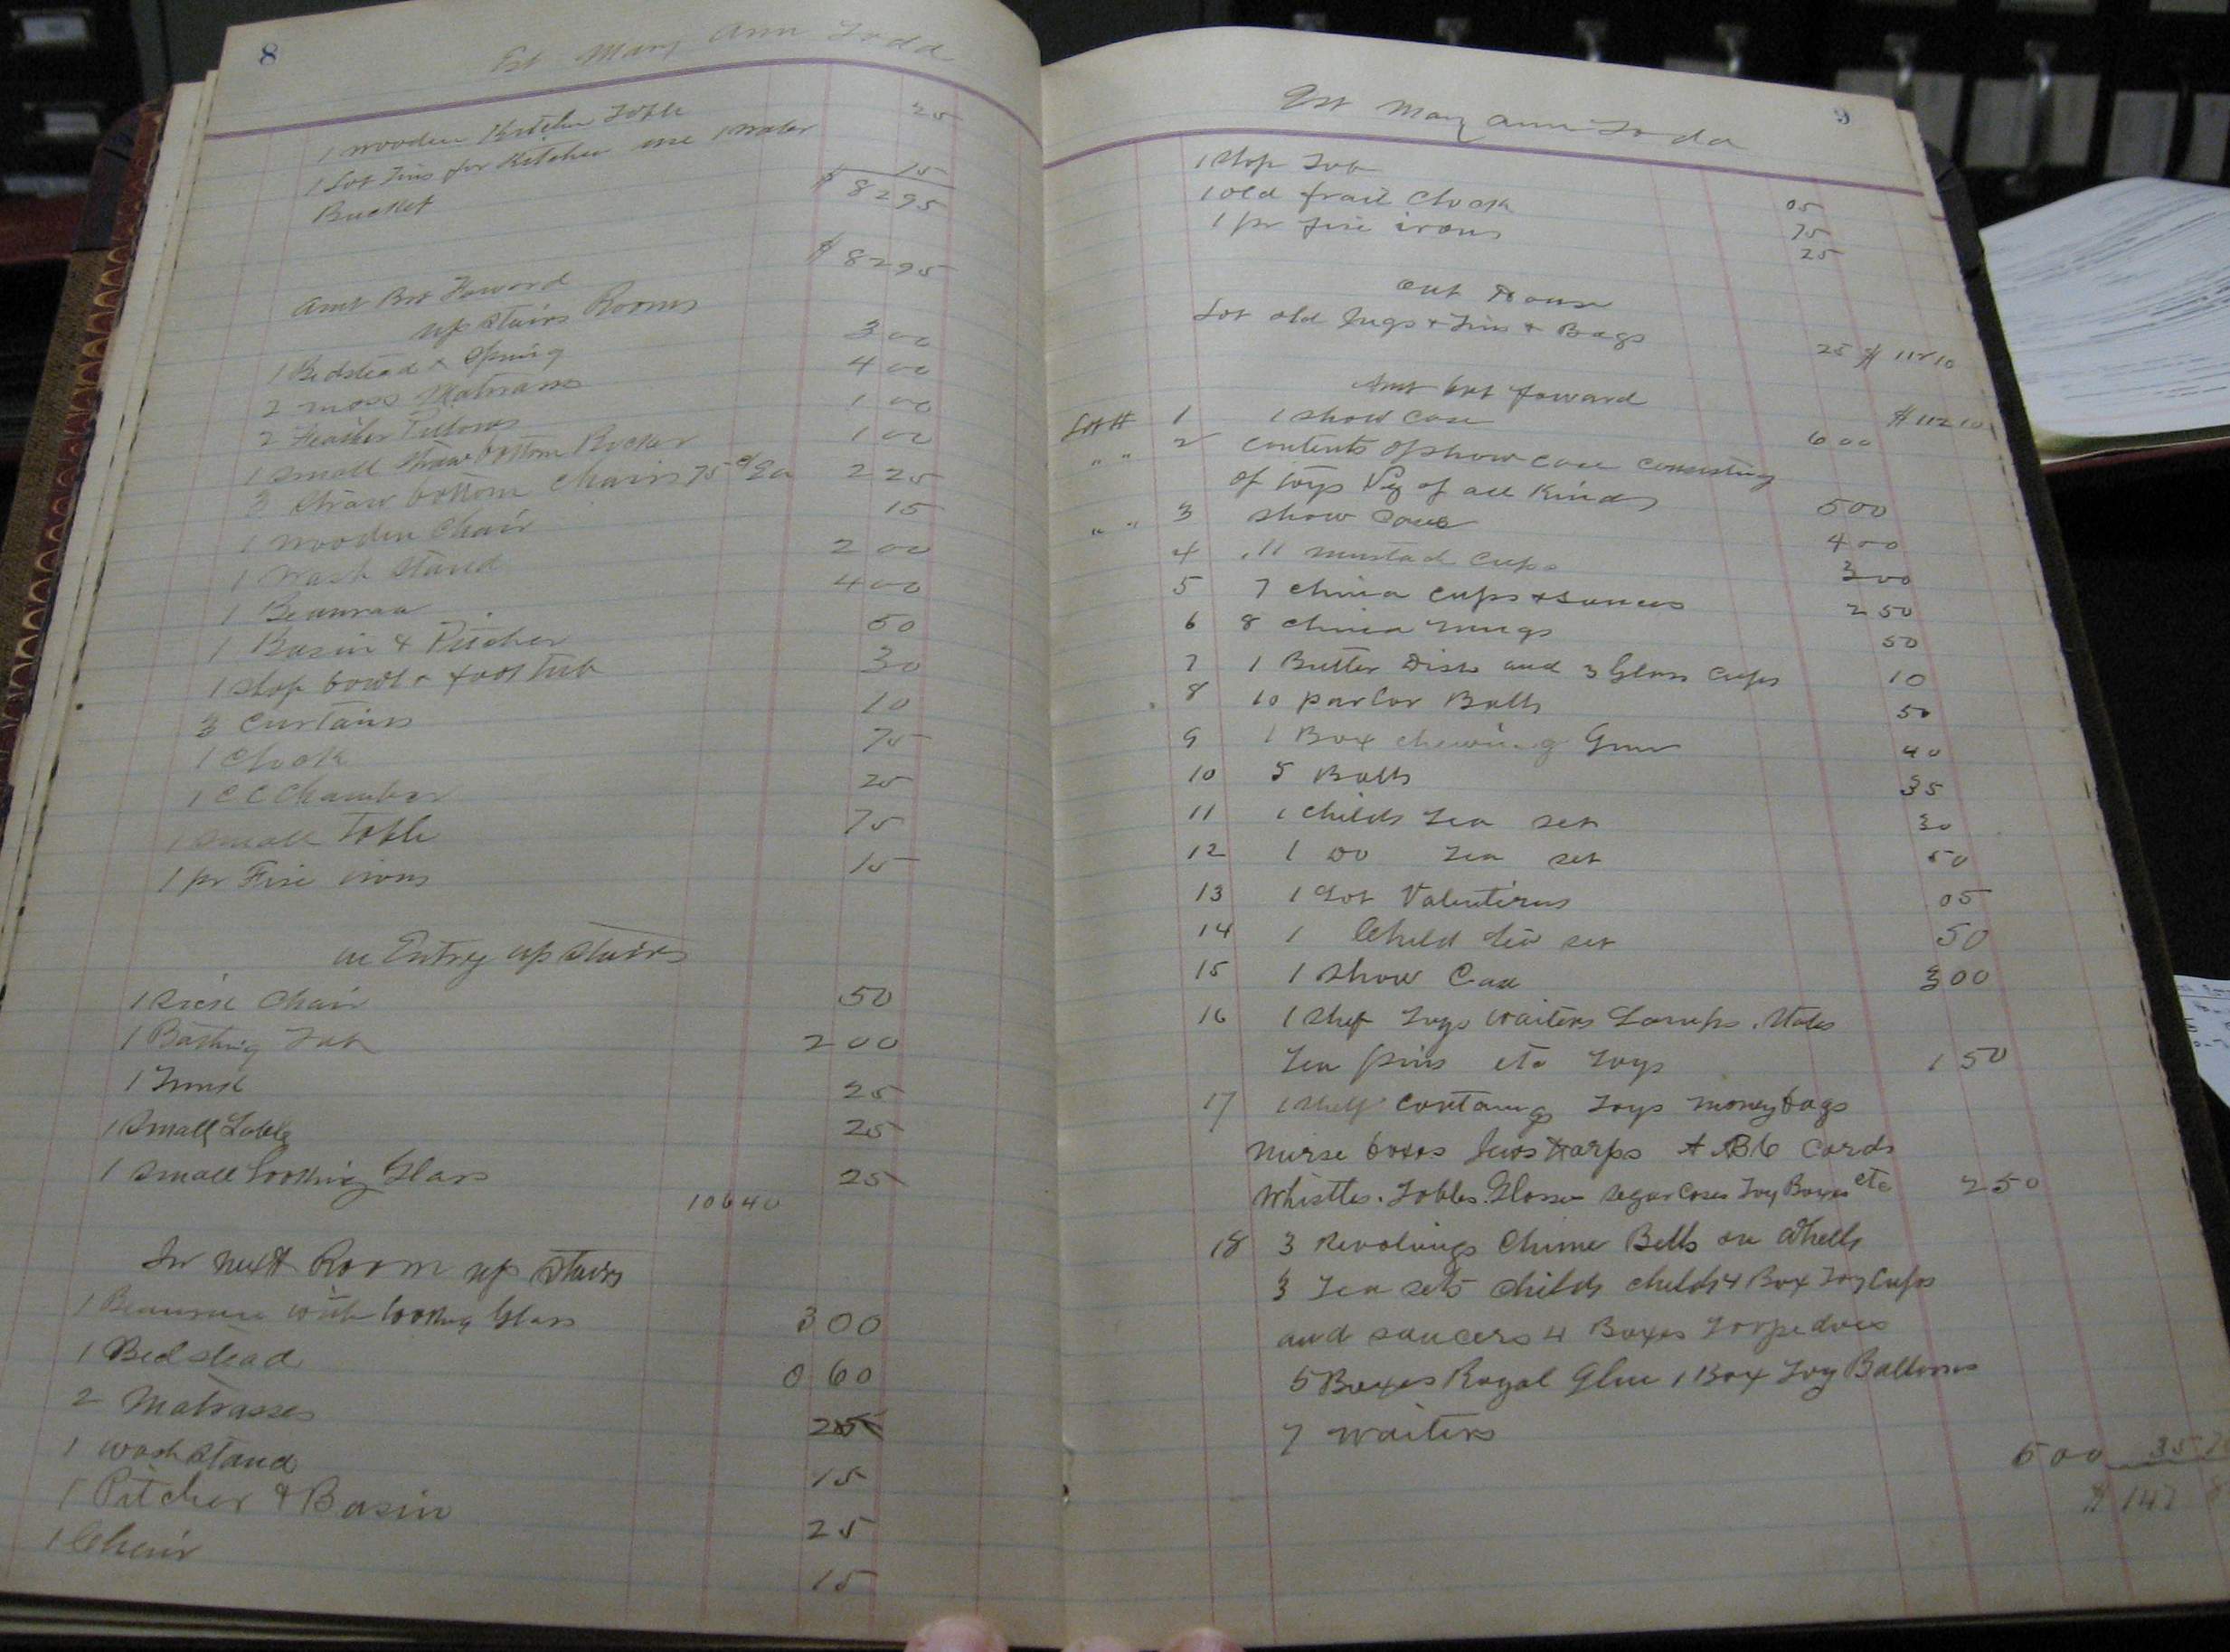 8
Est Mary Ann Todd
1 wooden Kitchen Table 25
1 Lot Tins for Kitchen use 1 water
Bucket 15
$ 82 95
Amt Brt Foward $ 82 95
up stairs Rooms
1 Bedstead & Spring 3 00
2 moss Matrasses 4 00
2 Feather Pillows 1 00
1 small straw bottom Rocker 1 00
3 straw bottom chairs 75 c/ Ea 2 25
1 wooden Chair 15
1 Wash Stand 2 00
1 Beaurau 4 00
1 Basin & Pitcher 50
1 slop bowl & foot tub 30
3 Curtains 10
1 Clock 75
1 C C Chamber 25
1 small Table 75
1 pr Fire irons 15
in Entry up stairs
1 Chair 50
1 Bathing Tub 2 00
1 Trunk 25
1 Small Table 25
1 small looking Glass 25
106 40
In next Room up stairs
1 Beaurau with looking Glass 3 00
1 Bedstead 0 60
2 Matrasses
1 wash stand 15
1 Pitcher & Basin 25
1 Chair 15
9
Est Mary Ann Todd
1 slop Tub 05
1 old frail Clock 75
1 pr fire irons 25
out House
Lot old Jugs & Tins & Bags 25 $ 112 10
Amt brt foward $ 112 10
Lot # 1 1 show case 6 00
" " 2 contents of show case consisting
of toys &c of all Kinds 5 00
" " 3 show case 4 00
4 11 mustad cups 3 00
5 7 china cups & saucers 2 50
6 8 china mugs 50
7 1 Butter Dish and 3 Glass cups 10
8 10 parlor Balls 50
9 1 Box chewing Gum 40
10 5 Balls 35
11 1 childs Tea set 30
12 1 Do Tea set 50
13 1 Lot Valentines 05
14 1 Child tea set 50
15 1 show Case 3 00
16 1 shef Toys waiters Lamps
Ten pins etc Toys 1 50
17 1 shelf containg Toys money bags
nurse boxes Jews Harps A B C Cards
Whistles. Tables. Glasses segar Cases Toy Boxes etc 2 50
18 3 Revolvings Chime Bells on Whells
3 Tea sets childs childs 4 Box Toy Cups
and saucers 4 Boxes Torpedoes
5 Boxes Royal Glue 1 Box Toy Balloons
7 waiters 5 00 35
$ 147